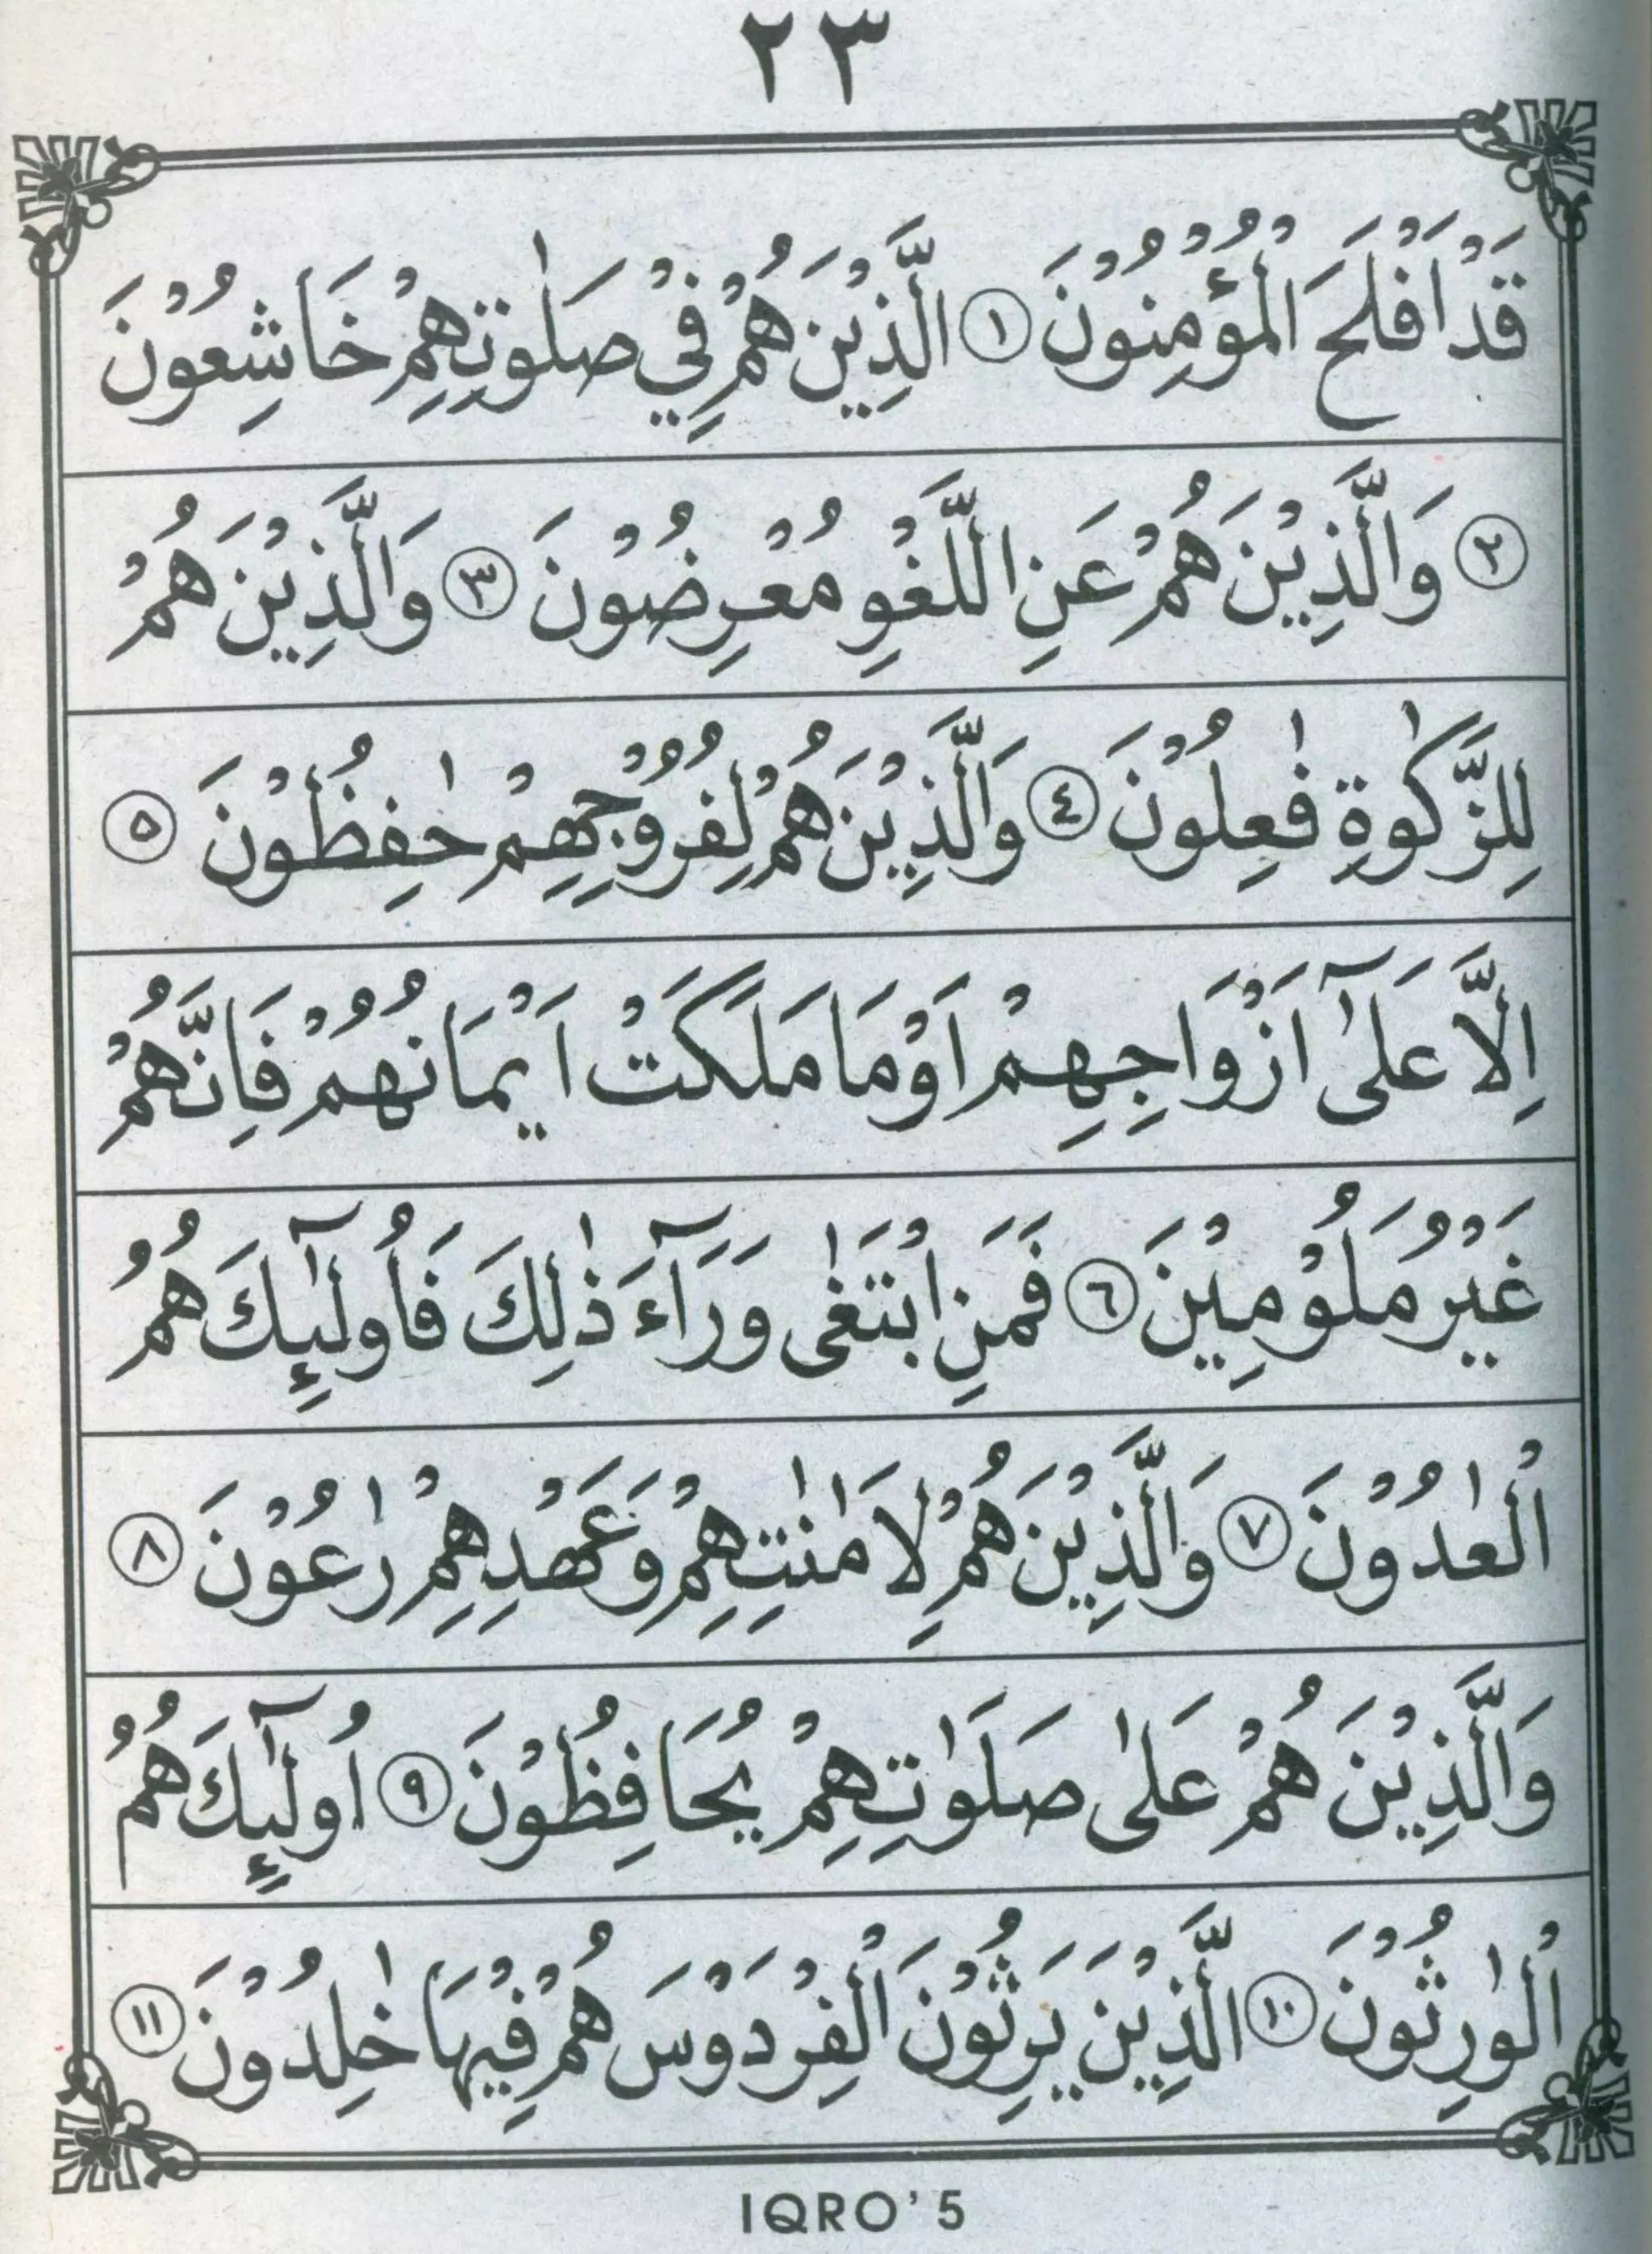 ٢٣
قَدْ اَفْلَحَ الْمُؤْمِنُوْنَ ١ الَّذِيْنَ هُمْ فِيْ صَلٰوتِهِمْ خَاشِعُوْنَ
٢ وَالَّذِيْنَ هُمْ عَنِ اللَّغْوِ مُعْرِضُوْنَ ٣ وَالَّذِيْنَ هُمْ
لِلزَّكٰوةِ فٰعِلُوْنَ ٤ وَالَّذِيْنَ هُمْ لِفُرُوْجِهِمْ حٰفِظُوْنَ ٥
اِلَّا عَلٰٓى اَزْوَاجِهِمْ اَوْ مَا مَلَكَتْ اَيْمَانُهُمْ فَاِنَّهُمْ
غَيْرُ مَلُوْمِيْنَ ٦ فَمَنِ ابْتَغٰى وَرَآءَ ذٰلِكَ فَاُولٰٓئِكَ هُمُ
الْعٰدُوْنَ ٧ وَالَّذِيْنَ هُمْ لِاَمٰنٰتِهِمْ وَعَهْدِهِمْ رٰعُوْنَ ٨
وَالَّذِيْنَ هُمْ عَلٰى صَلَوٰتِهِمْ يُحَافِظُوْنَ ٩ اُولٰٓئِكَ هُمُ
الْوٰرِثُوْنَ ١٠ الَّذِيْنَ يَرِثُوْنَ الْفِرْدَوْسَ هُمْ فِيْهَا خٰلِدُوْنَ ١١
IQRO' 5